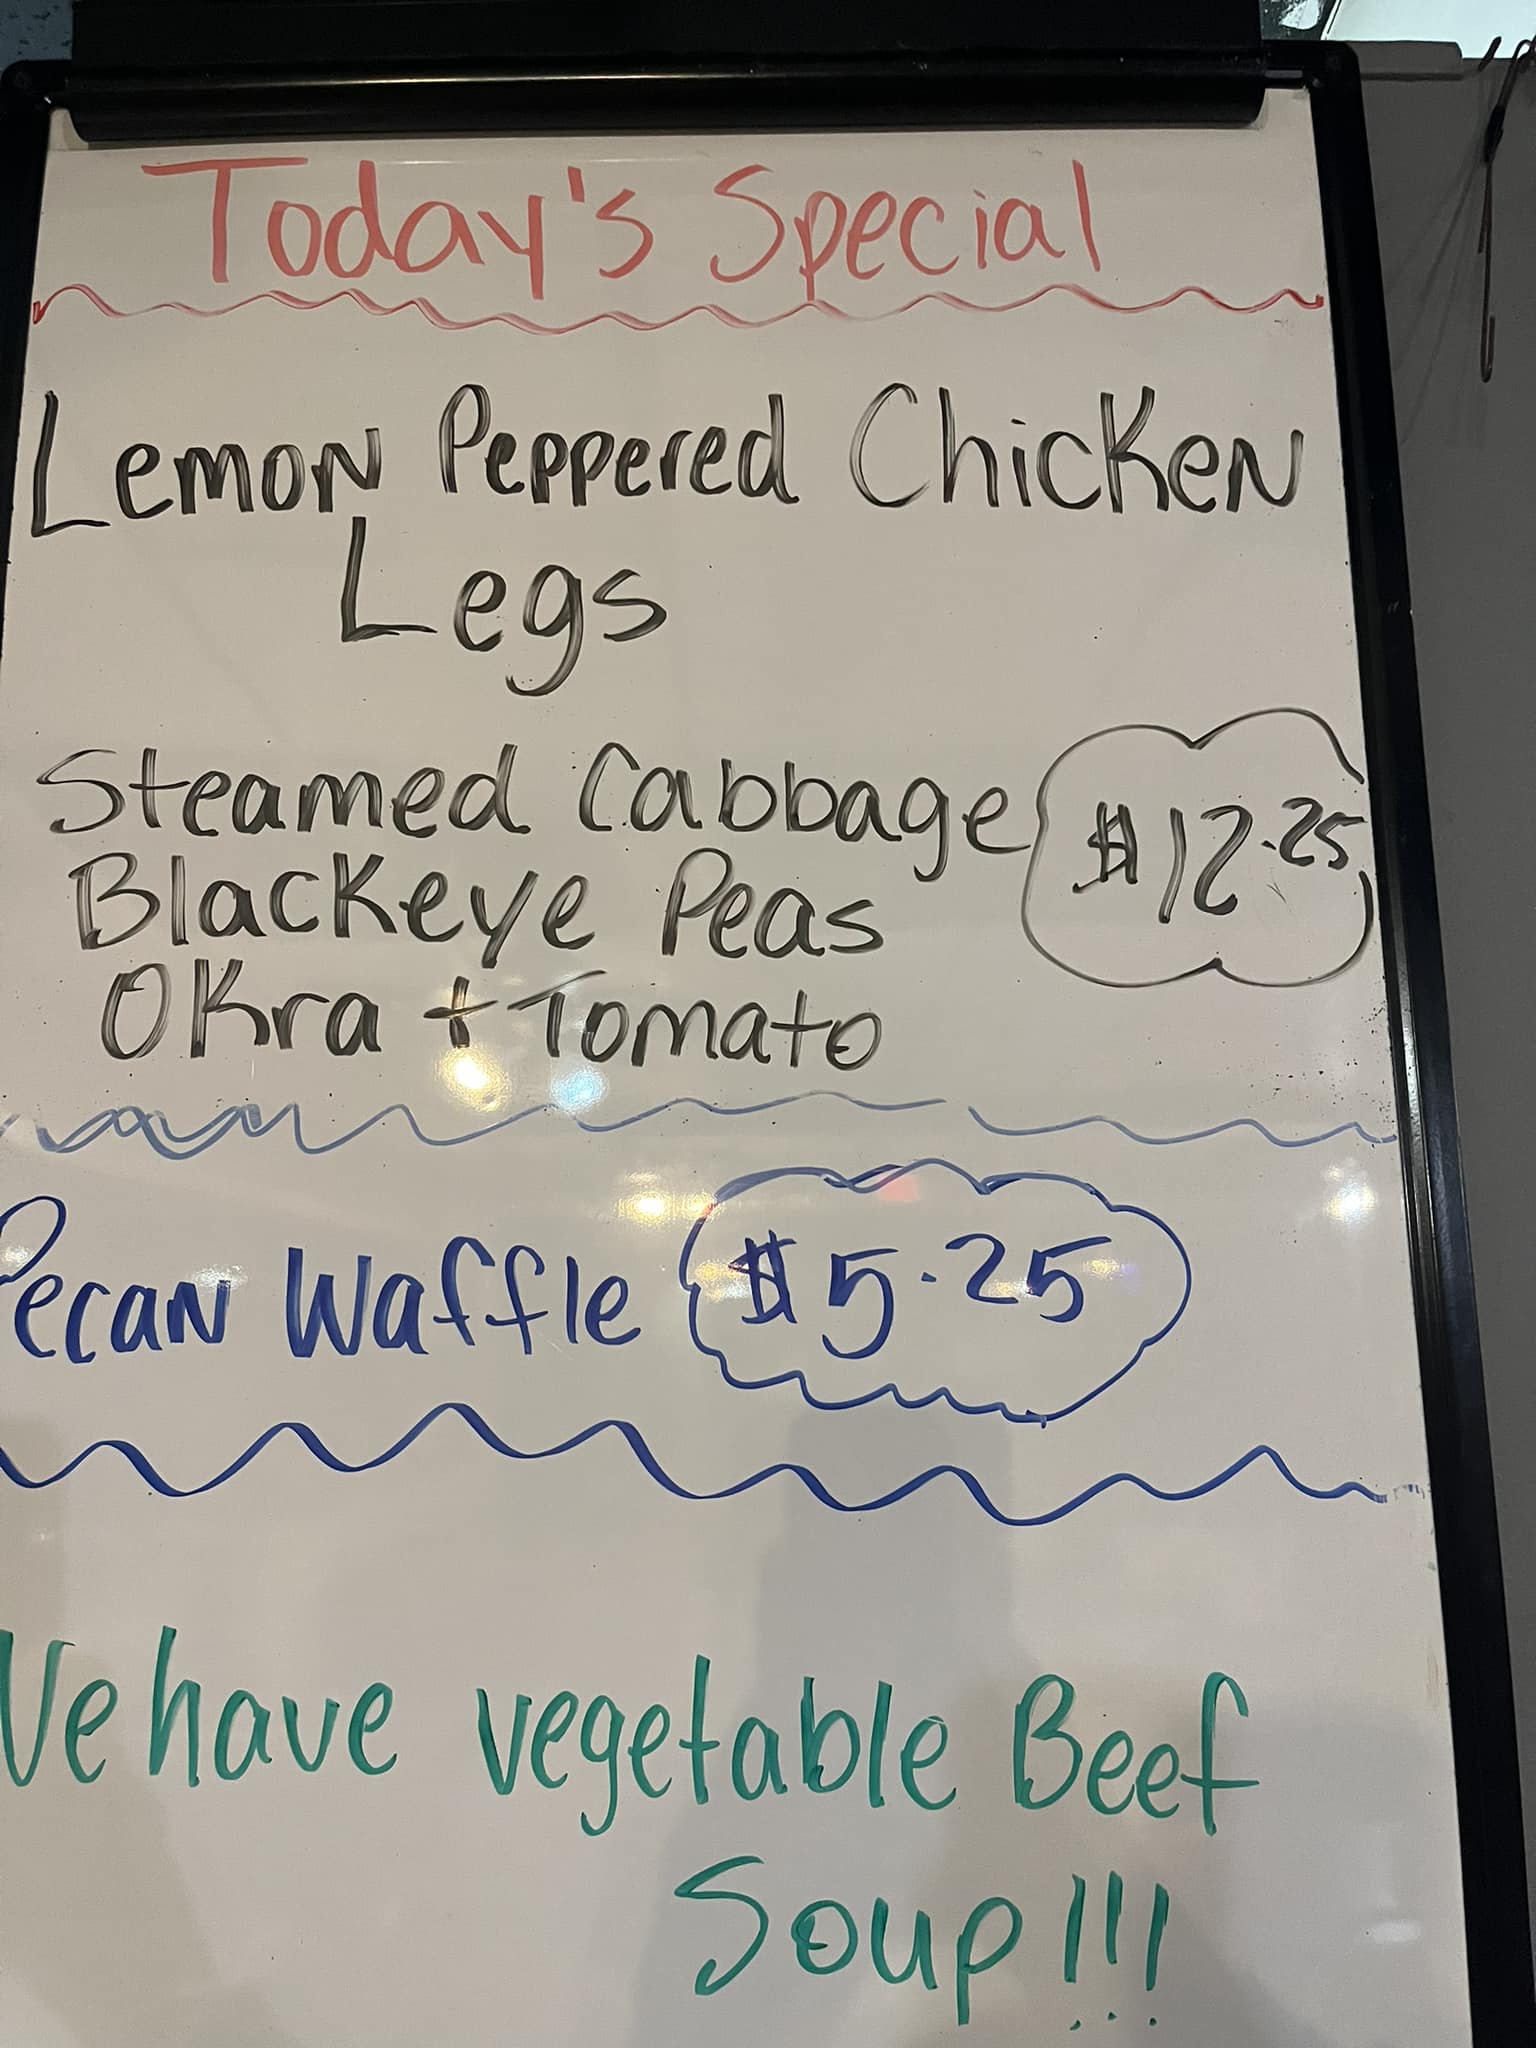 Today's Special
Lemon Peppered Chicken
Legs
Steamed Cabbage
Blackeye Peas
$12.25
Okra + Tomato
Pecan Waffle $5.25
We have vegetable Beef
Soup!!!